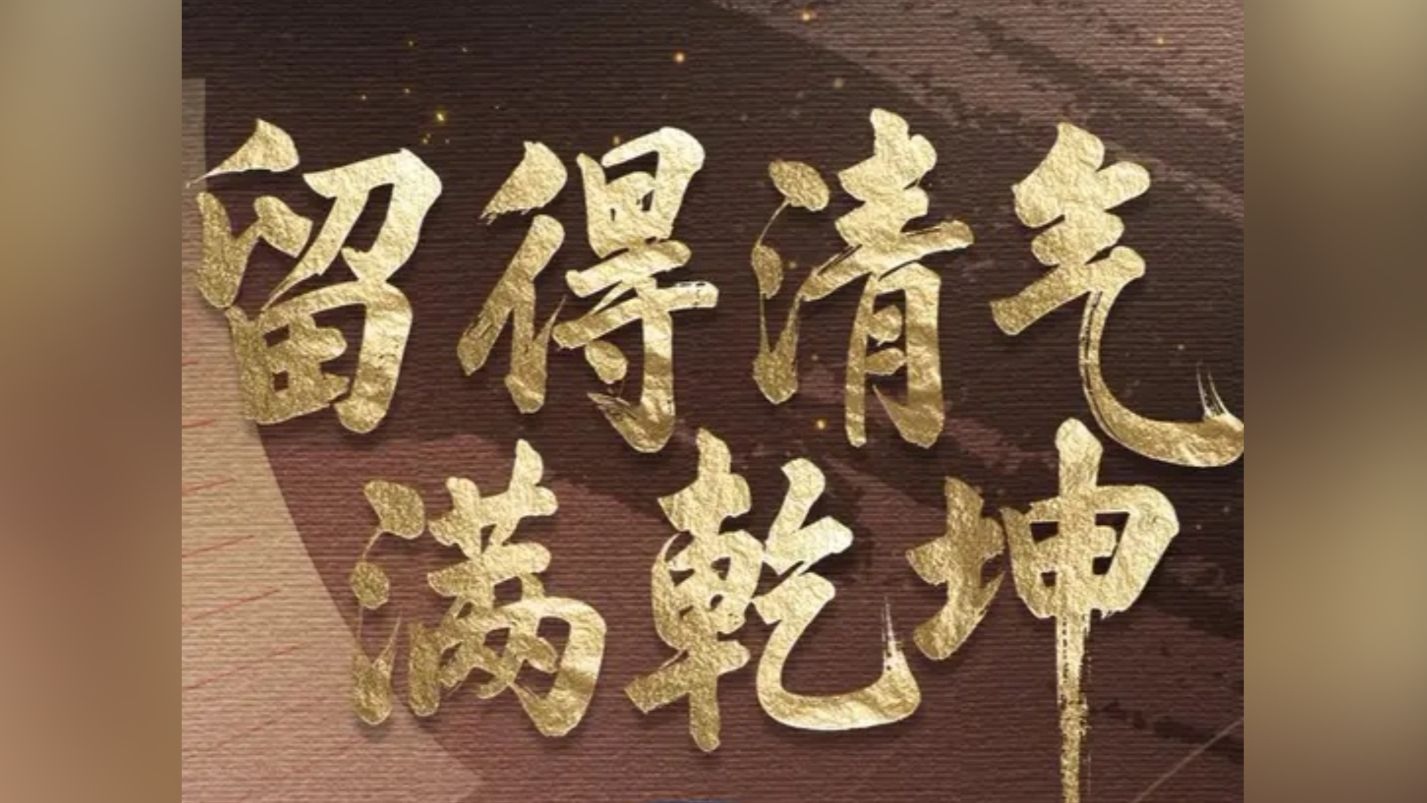 留得清气
满乾坤